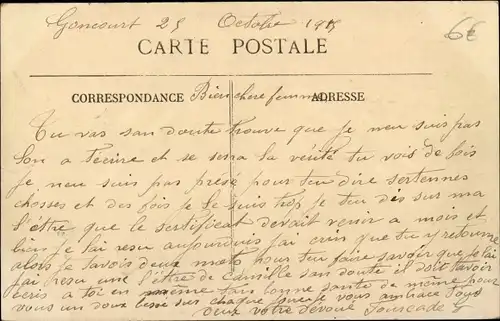 Goncourt 25 Octobre 1915
6€
CARTE POSTALE
CORRESPONDANCE Bien chere femme ADRESSE
Tu vas san doute trouve que je neu suis pas
Son a técrire et se sera la vérité tu vois de fois
je neu suis pas présé pour teu dire sertennes
chosses et des fois je le suis trop je teu dis sur ma
l'étre que le sertificat devait venir a mois et
bien je lai resu aujourdui jai crin que tu y retourne
alors je tavois deux mots pour teu faire savoir que je lai
jai resu une l'étre de Camille san doute il doit tavoir
écris a toi en même tan bonne santé de meme pour
vous un doux besé sur chaque joue je vous ambrace tous
deux votre dévoué Fourcade